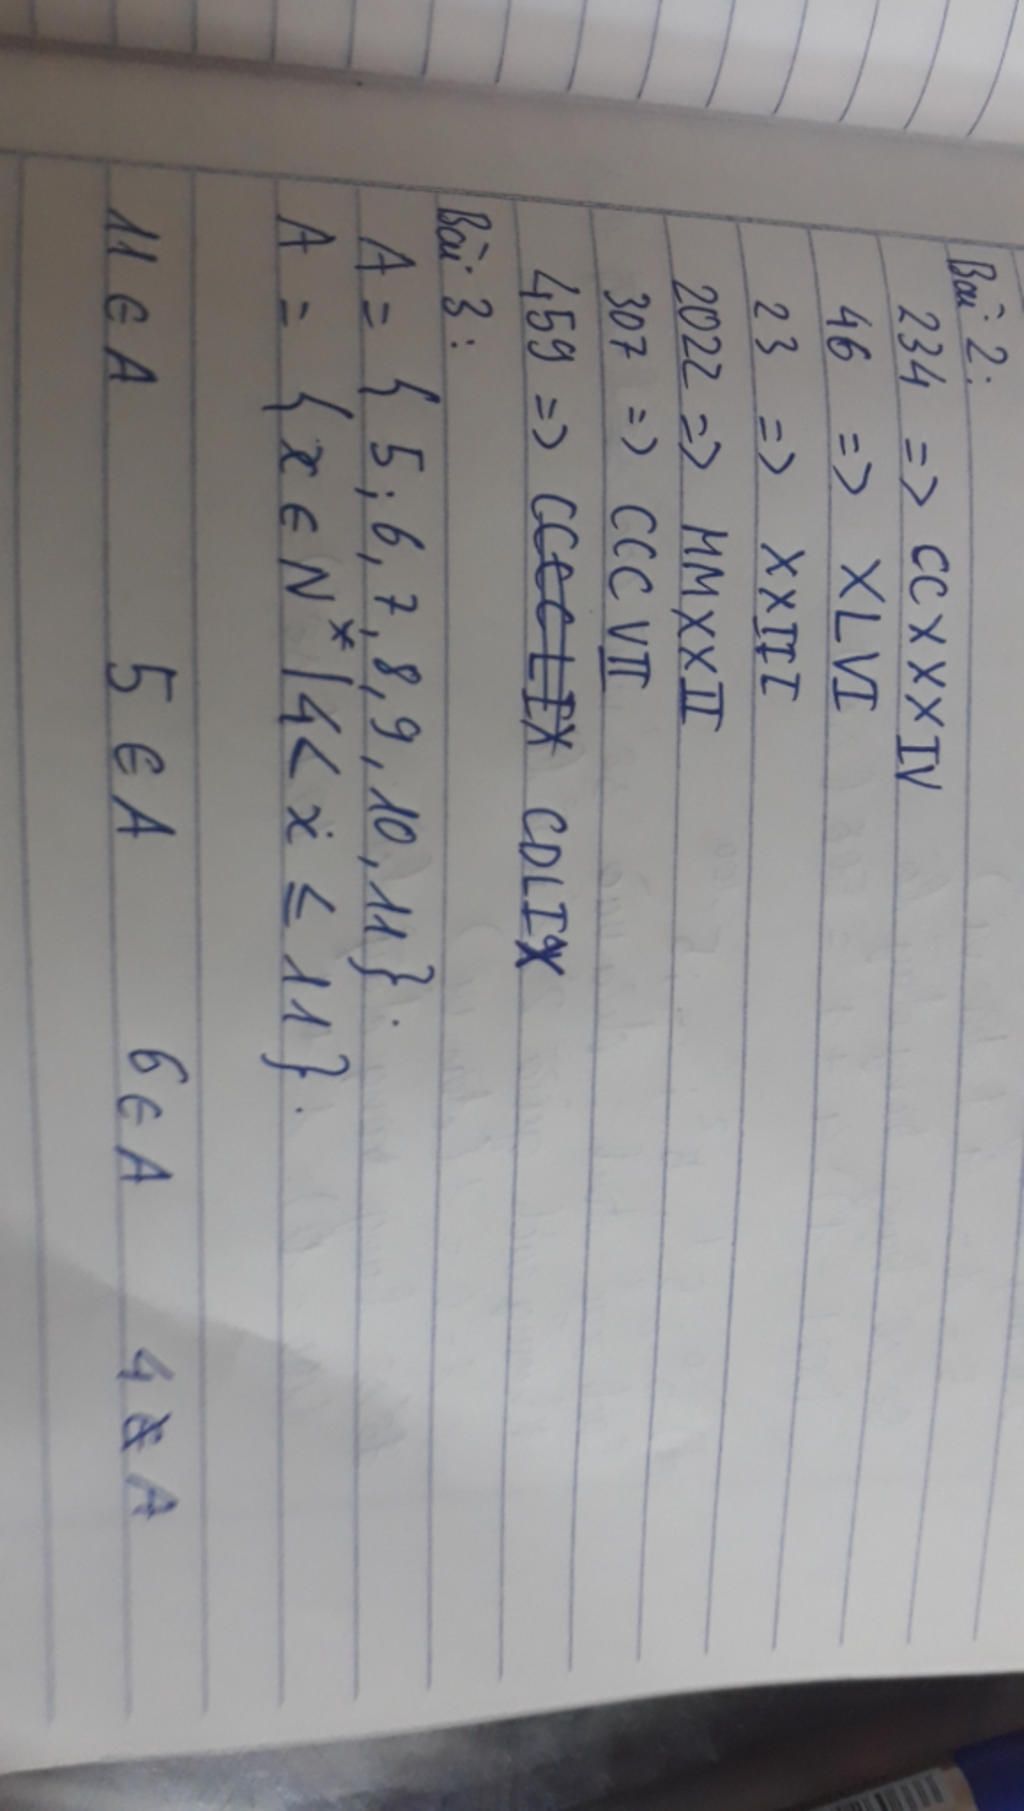 Bài 2:
234 => CCXXXIV
46 => XLVI
23 => XXIII
2022 => MMXXII
307 => CCCVII
459 => CCCCLIX CDLIX
Bài 3:
A = { 5; 6, 7, 8, 9, 10, 11}.
A = { x ∈ N* | 4 < x ≤ 11}.
11 ∈ A 5 ∈ A 6 ∈ A 4 ∉ A